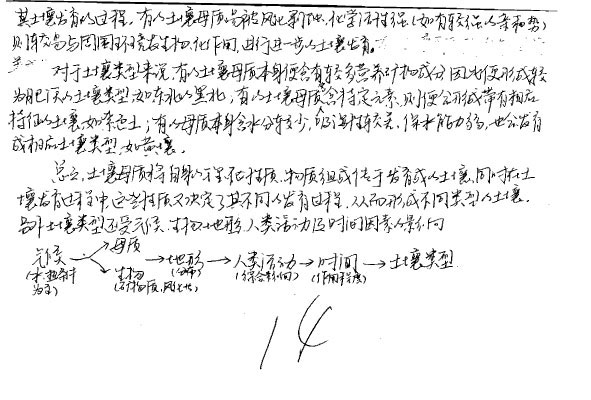 其土壤发育的过程，有的土壤母质易被风化影响，化学活性强（如有较强的亲和势）
则较易与周围环境发生物化作用，进行进一步的土壤发育。
对于土壤类型来说，有的土壤母质本身便含有较多营养矿物成分，因此便形成较
为肥沃的土壤类型，如东北的黑土，有的土壤母质含特定元素，则便会形成带有相应
特征的土壤，如紫色土；有的母质本身含水分较少，保水能力弱，也会发育
成相应土壤类型，如黄壤。
总之，土壤母质将自身的理化性质、物质组成传于发育成的土壤，同时在土
壤发育过程中，这些性质又决定了其不同的发育过程，从而形成不同类型的土壤。
另外土壤类型还受气候、生物、地形、人类活动及时间因素的影响
气候 → 母质 → 地形 → 人类活动 → 时间 → 土壤类型
（水、热条件为主） 生物 （分布） （综合影响） （作用程度）
14